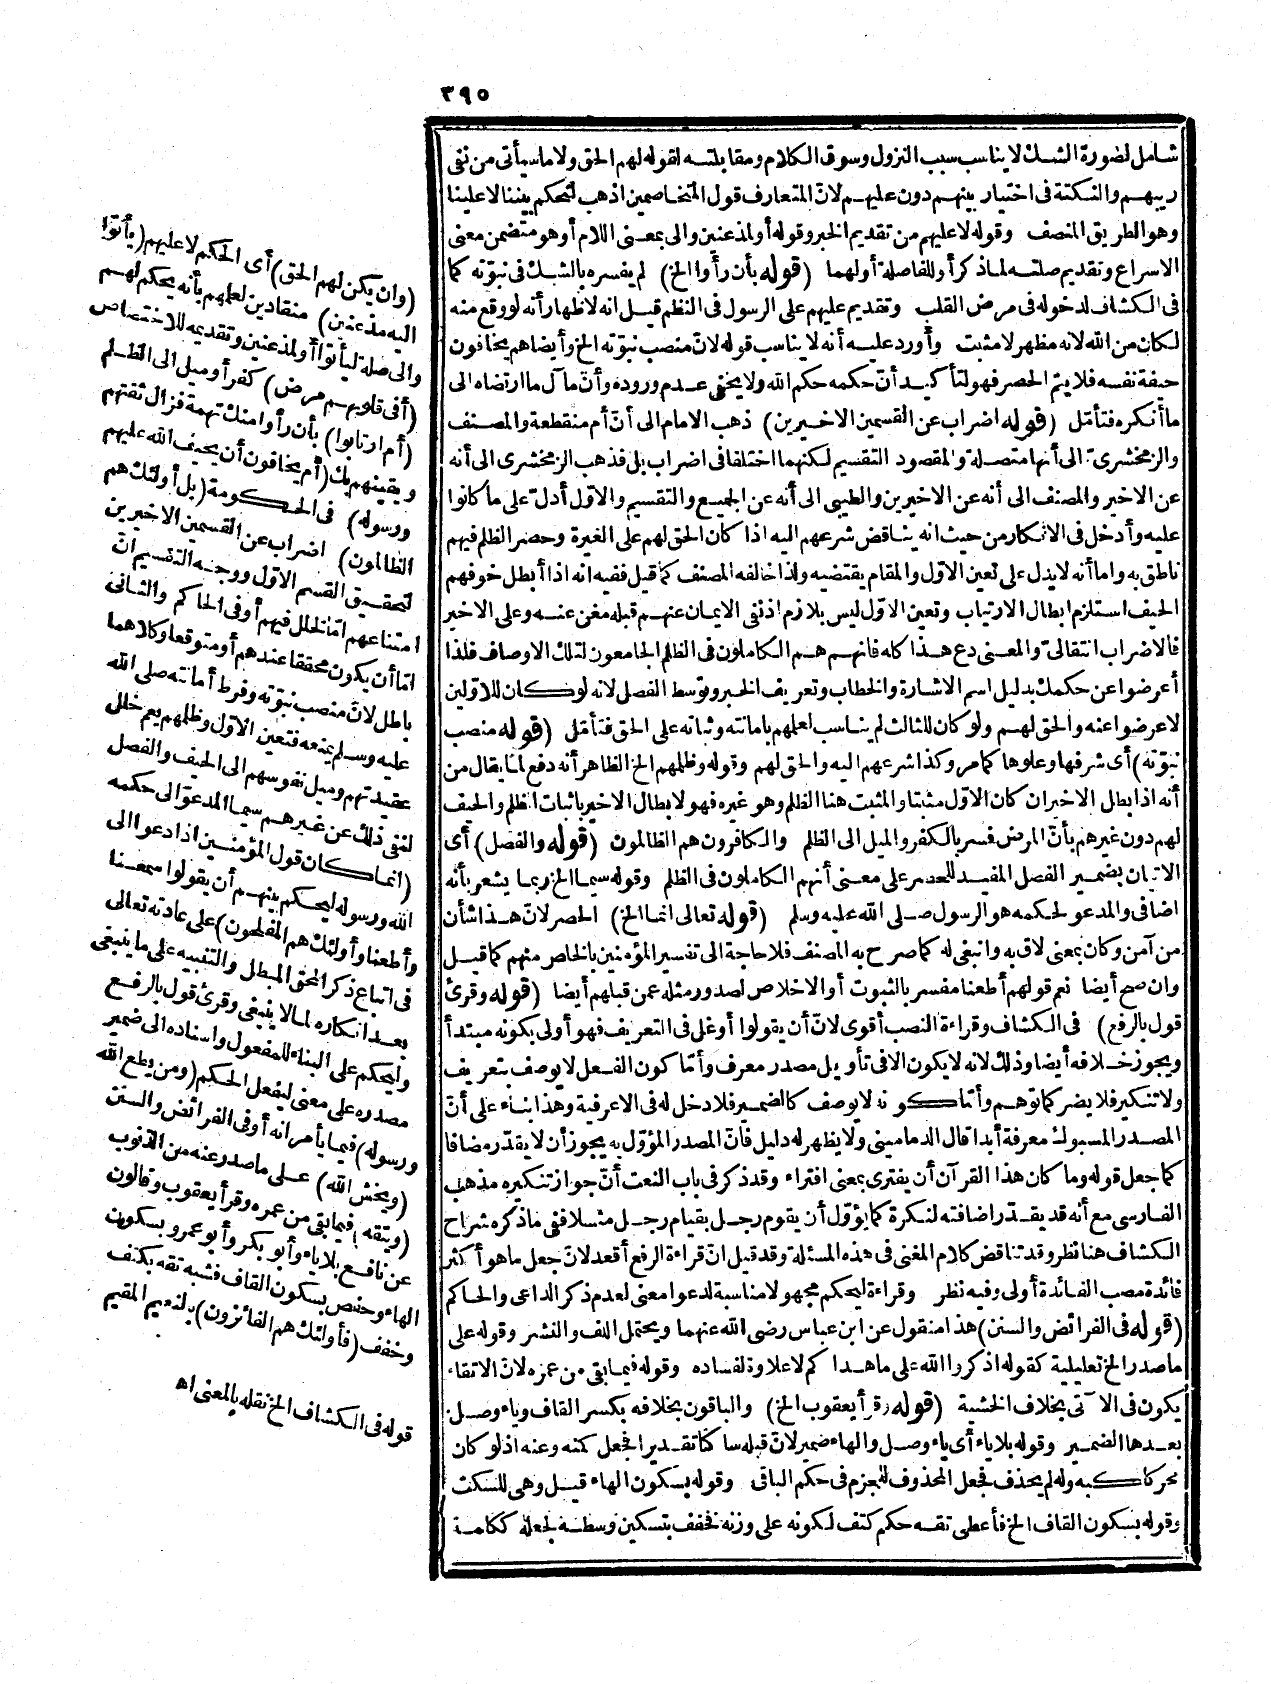 ٣٩٥
شامل لصورة الشك لا يناسب سبب النزول وسوق الكلام ومقابلته لقوله لهم الحق ولا ما سيأتى من نفى
ريبهم والنكتة فى اختيار بينهم دون عليهم لانّ المتعارف قول المتخاصمين اذهب لنحكم بيننا لا علينا
وهو الطريق المنصف وقوله لا عليهم من تقديم الخبر وقوله أو لمذعنين والى بمعنى اللام أو هو متضمن معنى
الاسراع وتقديم صلته لما ذكر أو للفاصلة أولهما (قوله بأن رأوا الخ) لم يفسره بالشك فى نبوّته كما
فى الكشاف لدخوله فى مرض القلب وتقديم عليهم على الرسول فى النظم قيل انه لاظهار أنه لو وقع منه
لكان من الله لانه مظهر لا مثبت وأورد عليه أنه لا يناسب قوله لانّ منصب نبوّته الخ وأيضا هم يخافون
حيفة نفسه فلا يتم الحصر فهو لتأكيد أنّ حكمه حكم الله ولا يخفى عدم وروده وأنّ مآل ما ارتضاه الى
ما أنكره فتأمّل (قوله اضراب عن القسمين الاخيرين) ذهب الامام الى أنّ أم منقطعة والمصنف
والزمخشرىّ الى أنها متصلة والمقصود التقسيم لكنهما اختلفا فى اضراب بل فذهب الزمخشرى الى أنه
عن الاخير والمصنف الى أنه عن الاخيرين والطيبى الى أنه عن الجميع والتقسيم والاول أدلّ على ما كانوا
عليه وأدخل فى الانكار من حيث انه يناقض شرعهم اليه اذا كان الحق لهم على الغيرة وحصر الظلم فيهم
ناطق به واما أنه لا يدل على تعين الاوّل والمقام يقتضيه ولذا خالفه المصنف كما قيل ففيه انه اذا أبطل خوفهم
الحيف استلزم ابطال الارتياب وتعين الاوّل ليس بلازم اذ نفى الايمان عنهم قبله مغن عنه وعلى الاخير
فالاضراب انتقالىّ والمعنى دع هذا كله فانهم هم الكاملون فى الظلم الجامعون لتلك الاوصاف فلذا
أعرضوا عن حكمك بدليل اسم الاشارة والخطاب وتعريف الخبر وتوسط الفصل لانه لو كان للاوّلين
لاعرضوا عنه والحق لهم ولو كان للثالث لم يناسب لعلمهم بامانته وثباته على الحق فتأمّل (قوله منصب
نبوّته) أى شرفها وعلوها كما مر وكذا شرعهم اليه والحق لهم وقوله وظلمهم الخ الظاهر أنه دفع لما يقال من
أنه اذا بطل الاخيران كان الاوّل مثبتا والمثبت هنا الظلم وهو غيره فهو لابطال الاخير باثبات الظلم والحيف
لهم دون غيرهم بأنّ المرض فسر بالكفر والميل الى الظلم والكافرون هم الظالمون (قوله والفصل) أى
الاتيان بضمير الفصل المفيد للحصر على معنى أنهم الكاملون فى الظلم وقوله سيما الخ ربما يشعر بأنه
اضافى والمدعو لحكمه هو الرسول صلى الله عليه وسلم (قوله تعالى انما الخ) الحصر لانّ هذا شأن
من آمن وكان بمعنى لاق به وانبغى له كما صرح به المصنف فلا حاجة الى تفسير المؤمنين بالخاص منهم كما قيل
وان صح أيضا نعم قولهم أطعنا مفسر بالثبوت أو الاخلاص لصدور مثله عمن قبلهم أيضا (قوله وقرئ
قول بالرفع) فى الكشاف وقراءة النصب أقوى لانّ أن يقولوا أوغل فى التعريف فهو أولى بكونه مبتدأ
ويجوز خلافه أيضا وذلك لانه لا يكون الا فى تأويل مصدر معرف وأمّا كون الفعل لا يوصف بتعريف
ولا تنكير فلا يضر كما توهم وأمّا كونه لا يوصف كالضمير فلا دخل له فى الاعرفية وهذا بناء على أنّ
المصدر المسبوك معرفة أبدا قال الدمامينى ولا يظهر له دليل فانّ المصدر المؤوّل به يجوز أن لا يقدّر مضافا
كما جعل قوله وما كان هذا القرآن أن يفترى بمعنى افتراء وقد ذكر فى باب النعت أنّ جواز تنكيره مذهب
الفارسى مع أنه قد يقدّر اضافته لنكرة كما يؤوّل أن يقوم رجل بقيام رجل مثلا ففى ما ذكره شراح
الكشاف هنا نظر وقد تناقض كلام المغنى فى هذه المسئلة وقد قيل انّ قراءة الرفع أقعد لانّ جعل ما هو أكثر
فائدة مصب الفائدة أولى وفيه نظر وقراءة ليحكم مجهولا مناسبة لدعوا معنى لعدم ذكر الداعى والحاكم
(قوله فى الفرائض والسنن) هذا منقول عن ابن عباس رضى الله عنهما ويحتمل اللف والنشر وقوله على
ما صدر الخ تعليلية كقوله اذكروا الله على ما هداكم لا علاوة لفساده وقوله فيما بقى من عمره لانّ الاتقاء
يكون فى الآتى بخلاف الخشية (قوله وقرأ يعقوب الخ) والباقون بخلافه بكسر القاف وياء وصل
بعدها الضمير وقوله بلا ياء أى ياء وصل والهاء ضمير لانّ قبله ساكنا تقديرا فجعل كمنه وعنه اذ لو كان
محركا كبه وله لم يحذف فجعل المحذوف للجزم فى حكم الباقى وقوله بسكون الهاء قيل وهى للسكت
وقوله بسكون القاف الخ فأعطى تقه حكم كتف لكونه على وزنه فخفف بتسكين وسطه لجعله ككلمة
(وان يكن لهم الحق) أى الحكم لا عليهم (يأتوا
اليه مذعنين) منقادين لعلمهم بأنه يحكم لهم
والى صلة ليأتوا أو لمذعنين وتقديمه للاختصاص
(أفى قلوبهم مرض) كفر أو ميل الى الظلم
(أم ارتابوا) بأن رأوا منك تهمة فزال ثقتهم
ويقينهم بك (أم يخافون أن يحيف الله عليهم
ورسوله) فى الحكومة (بل أولئك هم
الظالمون) اضراب عن القسمين الاخيرين
لتحقيق القسم الاوّل ووجه التقسيم انّ
امتناعهم امّا لخلل فيهم أو فى الحاكم والثانى
امّا أن يكون محققا عندهم أو متوقعا وكلاهما
باطل لانّ منصب نبوّته وفرط أمانته صلى الله
عليه وسلم يمنعه فتعين الاوّل وظلمهم يعم خلل
عقيدتهم وميل نفوسهم الى الحيف والفصل
لنفى ذلك عن غيرهم سيما المدعوّ الى حكمه
(انما كان قول المؤمنين اذا دعوا الى
الله ورسوله ليحكم بينهم أن يقولوا سمعنا
وأطعنا وأولئك هم المفلحون) على عادته تعالى
فى اتباع ذكر المحق المبطل والتنبيه على ما ينبغى
بعد انكاره لما لا ينبغى وقرئ قول بالرفع
وليحكم على البناء للمفعول واسناده الى ضمير
مصدره على معنى ليفعل الحكم (ومن يطع الله
ورسوله) فيما يأمرانه أو فى الفرائض والسنن
(ويخش الله) على ما صدر عنه من الذنوب
(ويتقه) فيما بقى من عمره وقرأ يعقوب وقالون
عن نافع بلا ياء وأبو بكر وأبو عمرو بسكون
الهاء وحفص بسكون القاف فشبه تقه بكتف
وخفف (فأولئك هم الفائزون) بالنعيم المقيم
قوله فى الكشاف الخ نقله بالمعنى اه